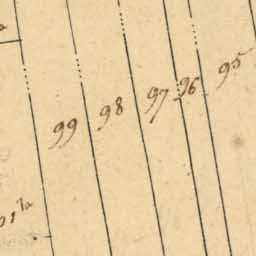 99 98 97 96 95